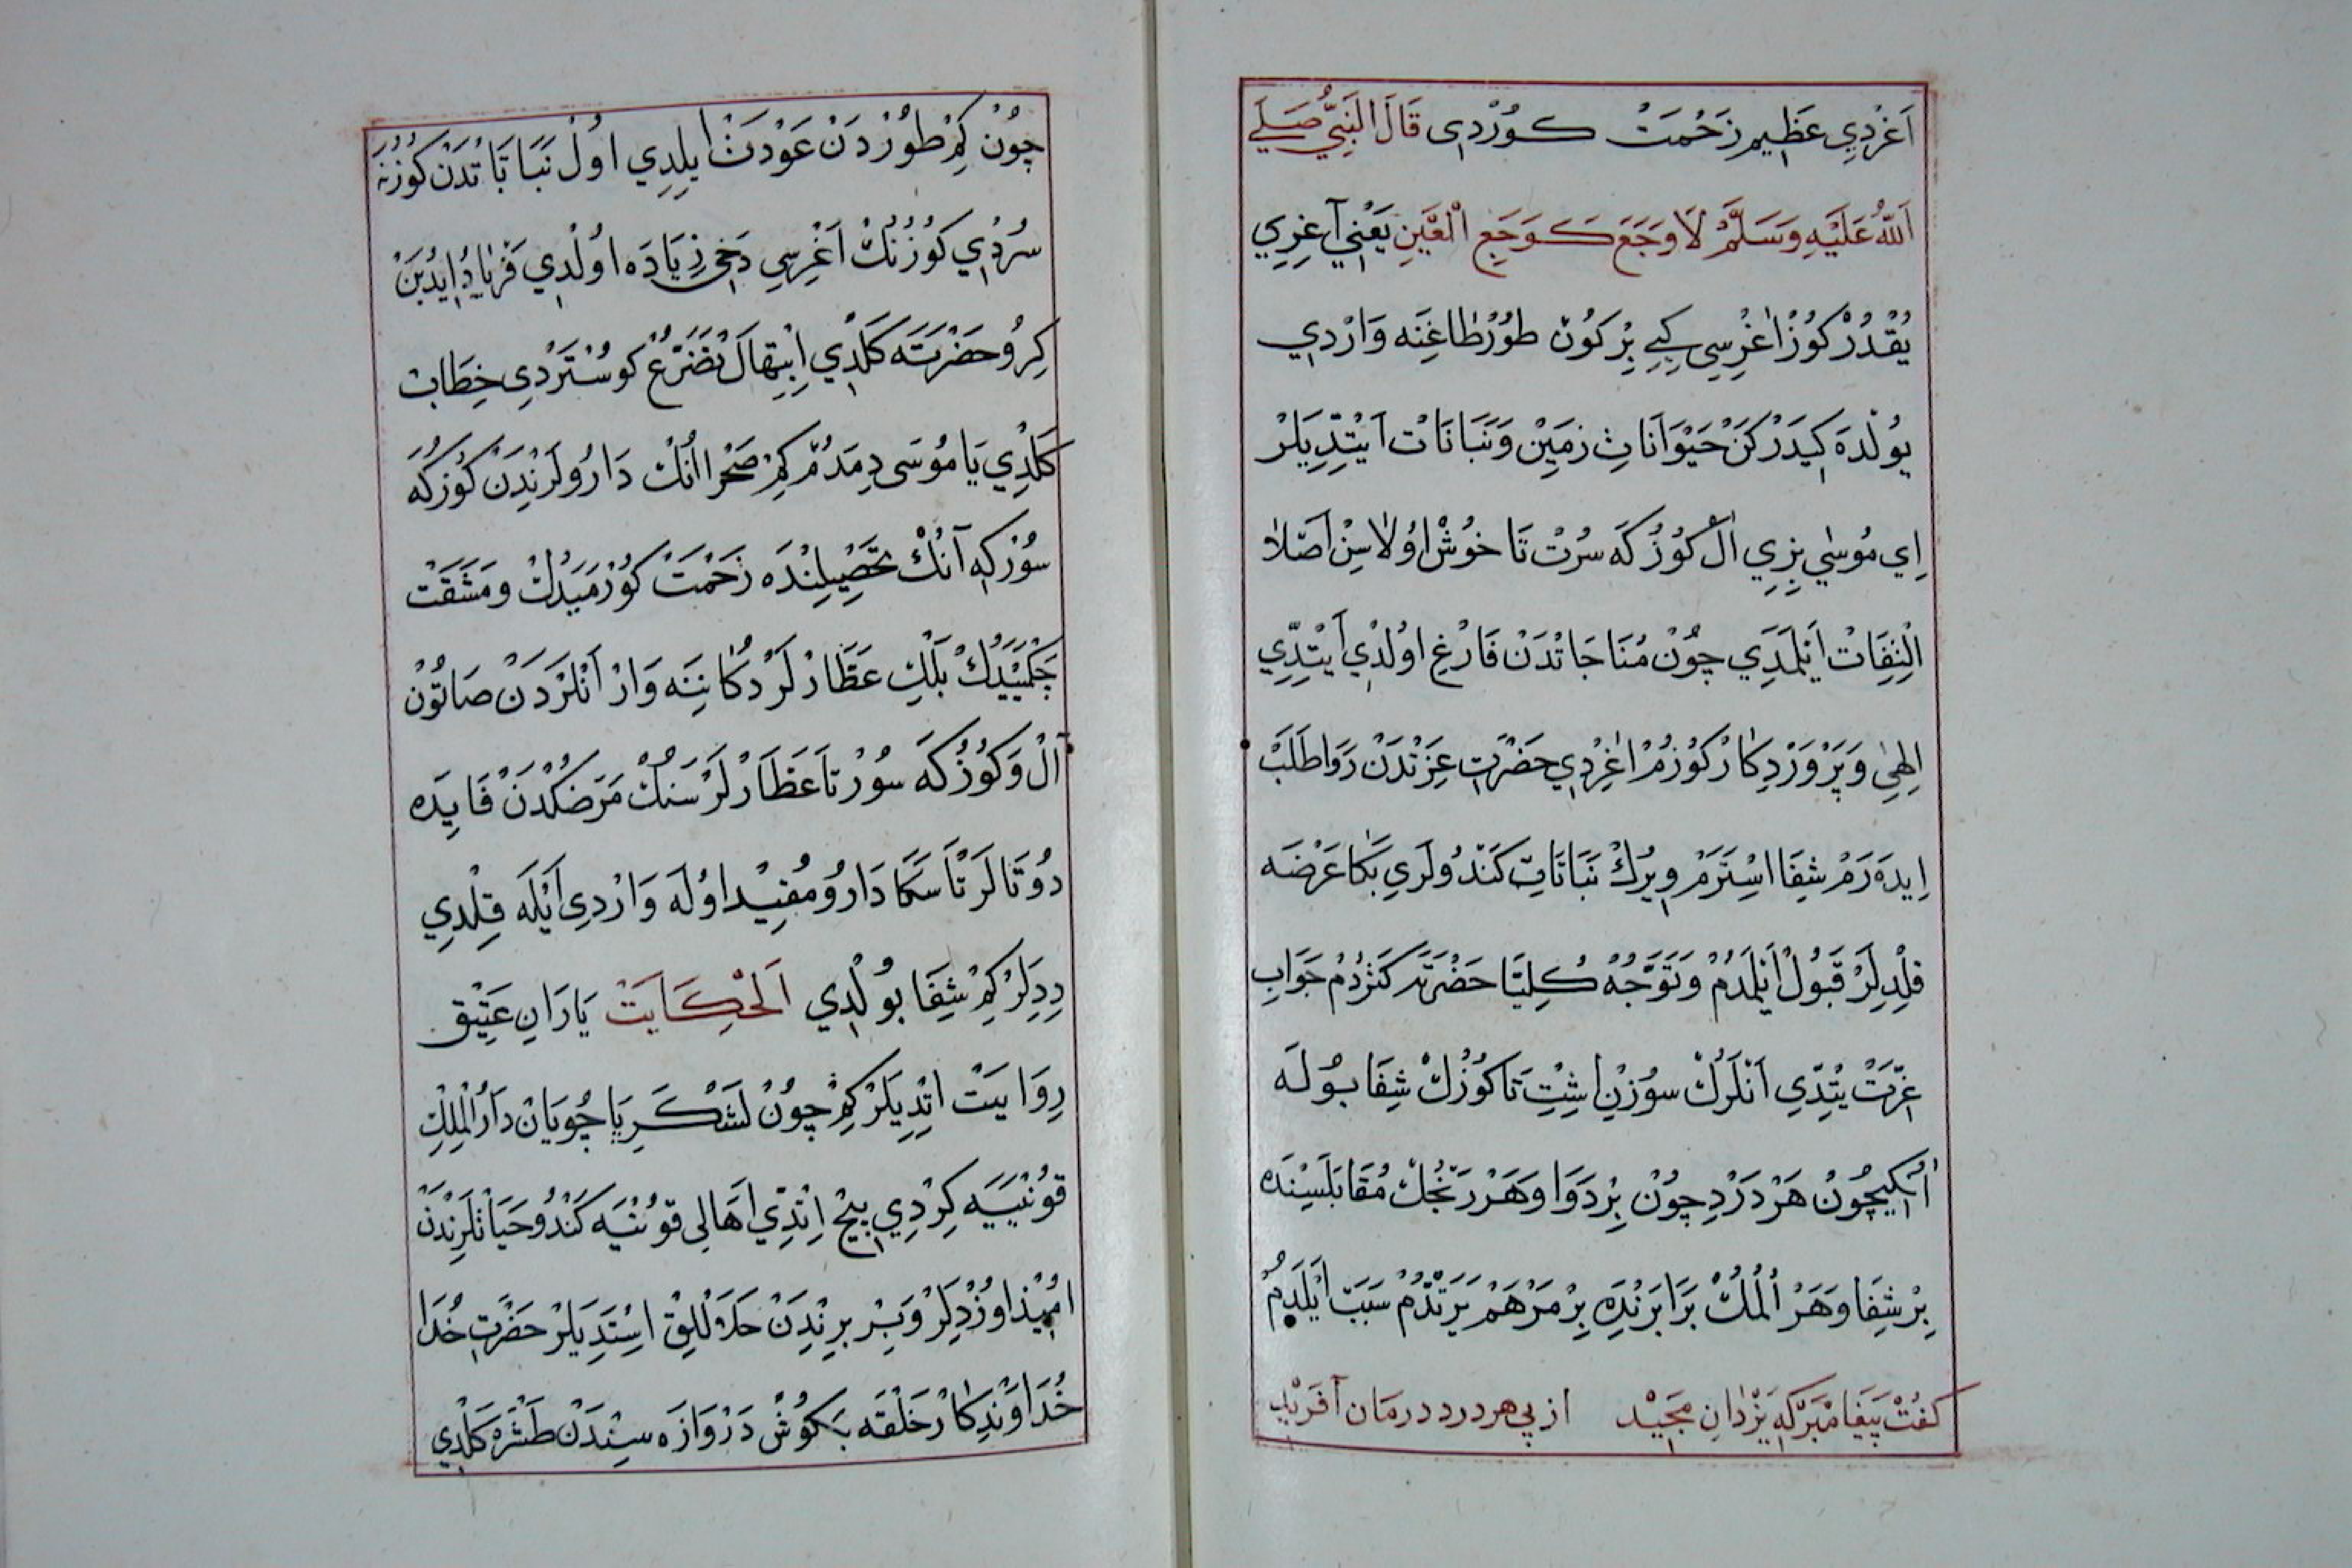 اَغْرِدِي عَظِيم زَحْمَتْ كورْدِى قَالَ النَّبِيُّ صَلَّى
اَللّٰهُ عَلَيْهِ وَسَلَّمَ لَا وَجَعَ كَوَجَعِ الْعَيْنِ يَعْنِي آغِرِي
يُقْدُرْ كُوزْ اٰغْرِسِى كِبِي بِرْ كُونْ طُورْ طَاغِنَه وَارْدِي
يُولْدَه كِيدَرْكَنْ حَيْوَانَاتِ زَمِينْ وَنَبَاتَاتْ اَيْتِدِّيلَرْ
اِي مُوسٰي بِزِي اَلْ كُوزُكَه سُرْتْ تَا خُوشْ اُولَاسِنْ اَصْلَا
اِلْتِفَاتْ اَيْلَمَدِي چُونْ مُنَاجَاتْدَنْ فَارِغْ اوُلْدِي اَيْتِدِّي
اِلٰهِي وَپَرْوَرْدِكَارْ كُوزُمْ اٰغْرِدِي حَضْرَتِ عِزَّتْدَنْ دَوَا طَلَبْ
اِيدَه رَمْ شِفَا اسْتَرَمْ وِيرُكْ نَبَاتَاتْ كَنْدُولَرِي بَكَا عَرْضَه
قِلْدِلَرْ قَبُولْ اَيْلَمَدُمْ وَتَوَجُّهْ كُلِّيَّا حَضْرَتَه كَتُرْدُمْ جَوَابِ
عِزَّتْ يِتِدِّي اَنْلَرُكْ سُوزِنْ اِشِتْ تَا كُوزُكْ شِفَا بُولَه
اَنُكِيچُونْ هَرْ دَرْدِچُونْ بِرْ دَوَا وَهَرْ رَنْجُكْ مُقَابَلَسِنْدَه
بِرْ شِفَا وَهَرْ اَلَمُكْ بَرَابَرِنْدَه بِرْ مَرْهَمْ يَرَتْدُمْ سَبَبْ اَيْلَدِمْ
كفُتْ پَيَغَامْبَرْ كِه يَزْدَانِ مَجِيدْ از پي هر درد درمان آفَرِيدْ
چُونْ كِمْ طُورْدَنْ عَوْدَتْ ايلِدِي اوُلْ نَبَاتَاتْدَنْ كُوزُنَه
سُرْدِي كُوزُنُكْ اَغْرِسِي دَخِي زِيَادَه اوُلْدِي فَرْيَادْ ايدُبَنْ
كِرُو حَضْرَتَه كَلْدِي اِبْتِهَالْ تَضَرُّعْ كوسْتَرْدِى خِطَابْ
كَلْدِي يَا مُوسَى دِمَدُمْ كِمْ صَحْرَانُكْ دَارُولَرِنْدَنْ كُوزُكَه
سُوزكِه آنُكْ تَحْصِيلِنْدَه زَحْمَتْ كُورْمَيَدُكْ وَمَشَقَّتْ
چَكْمَيَيدُكْ بَلْكِ عَطَّارْلَرْ دُكَانِنَه وَارْ اَنْلَرْدَنْ صَاتُونْ
آلْ وَكُوزُكَه سُورْ تَا عَطَّارْلَرْ سَنُكْ مَرَضُكْدَنْ فَايِدَه
دُوتَالَرْ تَا سَكَا دَارُو مُفِيدْ اوُلَه وَارْدِى اَيْلَه قِلْدِي
دِدِلَرْ كِمْ شِفَا بُولْدِي اَلْحِكَايَتْ يَارَانِ عَتِيقْ
رِوَايَتْ اتِدِيلَرْ كِمْ چُونْ لَشْكَرِ يَاجُويَانْ دَارُ الْمُلْكِ
قُونْيَيَه كِرْدِي پيچْ اِتْدِّي اَهَالِي قُونْيَه كَنْدُو حَيَاتْلَرِنْدَنْ
امُيْدْ اوُزْدِلَرْ وَبِرْ بِرِنْدَنْ حَلَالْلِقْ اسْتَدِيلَرْ حَضْرَتِ خُدَا
خُدَاوَنْدِكَارْ خَلْقَه بَكُوشْ دَرْوَازَه سِنْدَنْ طَشْرَه كَلْدِي